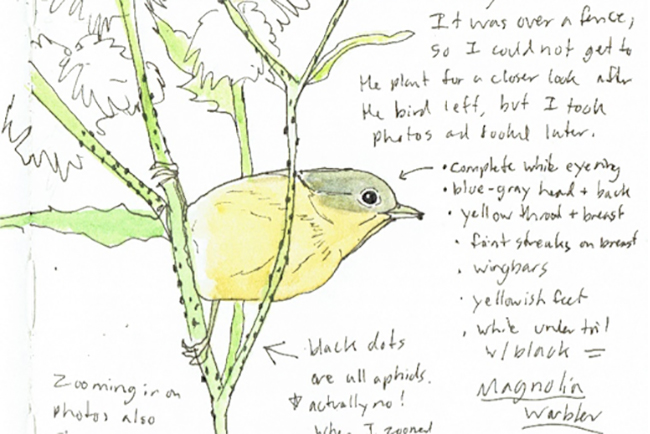 It was over a fence,
so I could not get to
the plant for a closer look after
the bird left, but I took
photos and looked later.
• complete white eyering
• blue-gray head + back
• yellow throat + breast
• faint streaks on breast
• wingbars
• yellowish feet
• white under tail
w/ black =
Magnolia
Warbler
black dots
are all aphids.
actually no!
When I zoomed
Zooming in on
photos also